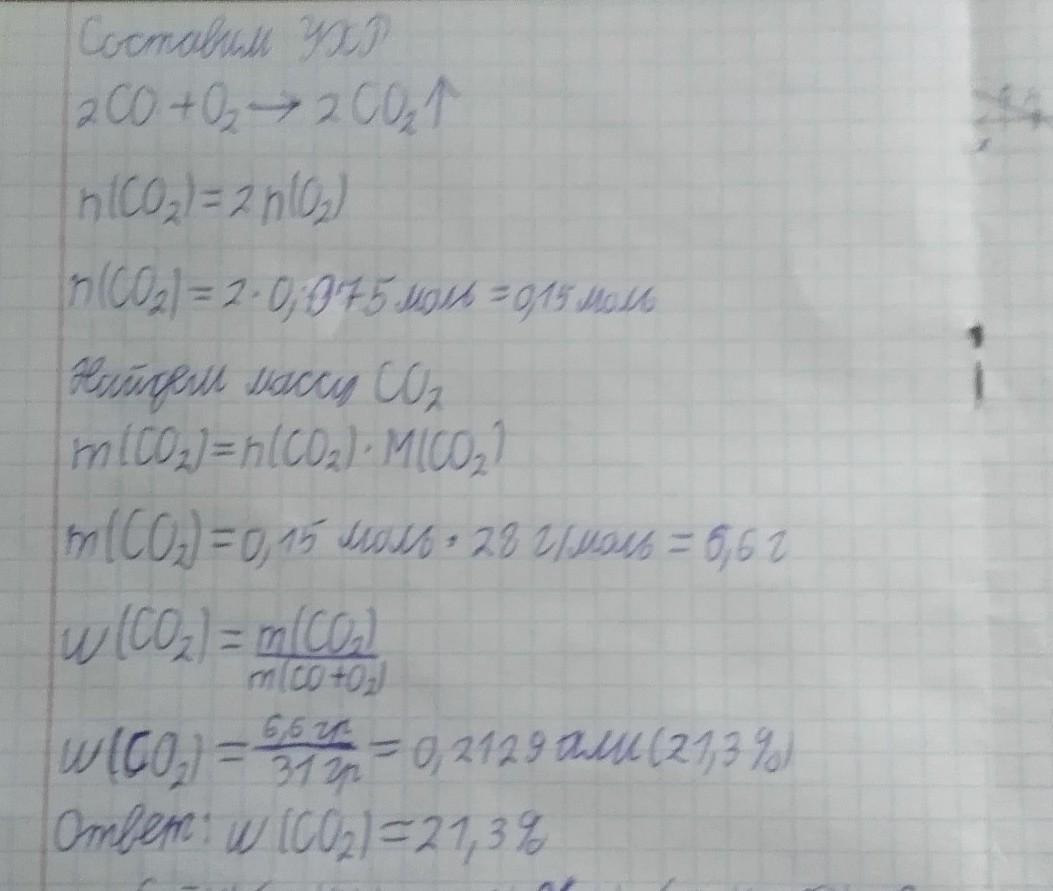 Составим УХР
2CO + O₂ → 2CO₂↑
n(CO₂) = 2n(O₂)
n(CO₂) = 2 · 0,075 моль = 0,15 моль
Найдем массу CO₂
m(CO₂) = n(CO₂) · M(CO₂)
m(CO₂) = 0,15 моль · 28 г/моль = 6,6 г
w(CO₂) = m(CO₂) / m(CO + O₂)
w(CO₂) = 6,6 гр / 31 гр = 0,2129 али (21,3%)
Ответ: w(CO₂) = 21,3%